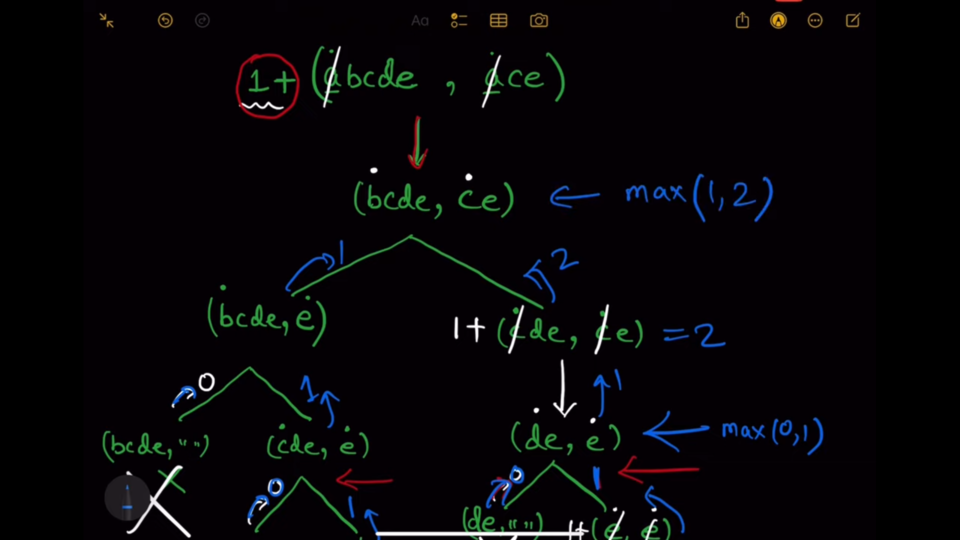 Aa
1+ (abcde , ace)
(bcde, ce) ← max(1,2)
1 2
(bcde, e) 1+ (cde, ce) = 2
0 1 1
(bcde, "") (cde, e) (de, e) ← max(0,1)
0 1 0 1
(de, "") 1+(e, e)